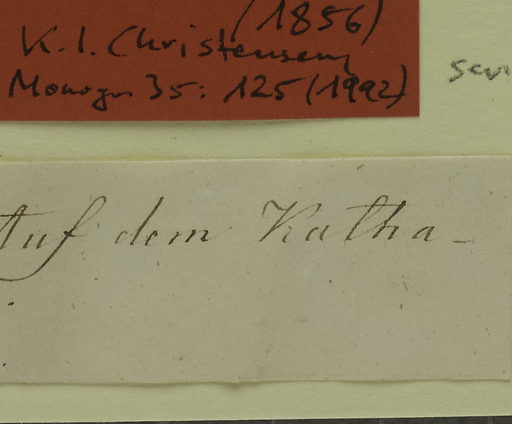 (1856)
K.I. Christensen
Monogr 35: 125 (1992)
Auf dem Katha-